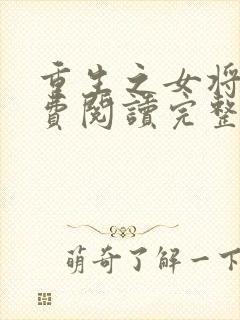 重生之女将
費閱讀完整
萌奇了解一下